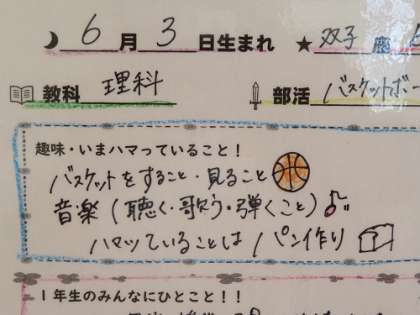 6月3日生まれ ★双子座
教科 理科 部活 バスケットボー
趣味・いまハマっていること！
バスケットをすること・見ること
音楽（聴く・歌う・弾くこと）
ハマッていることは パン作り
1年生のみんなにひとこと！！